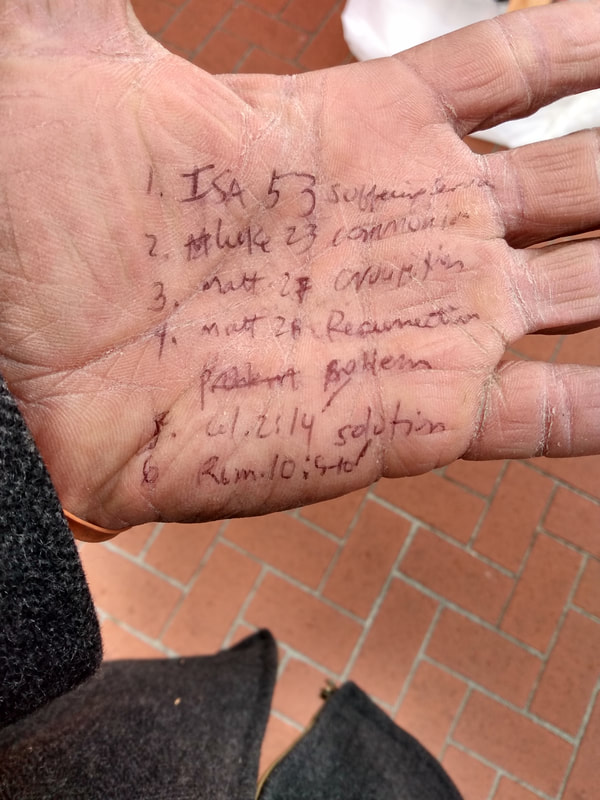 1. ISA 53 suffering servant
2. Luke 23 communion
3. Matt 27 crucifixion
4. Matt 28 Resurrection
problem
5. Col. 2:14 solution
6 Rom. 10:9-10